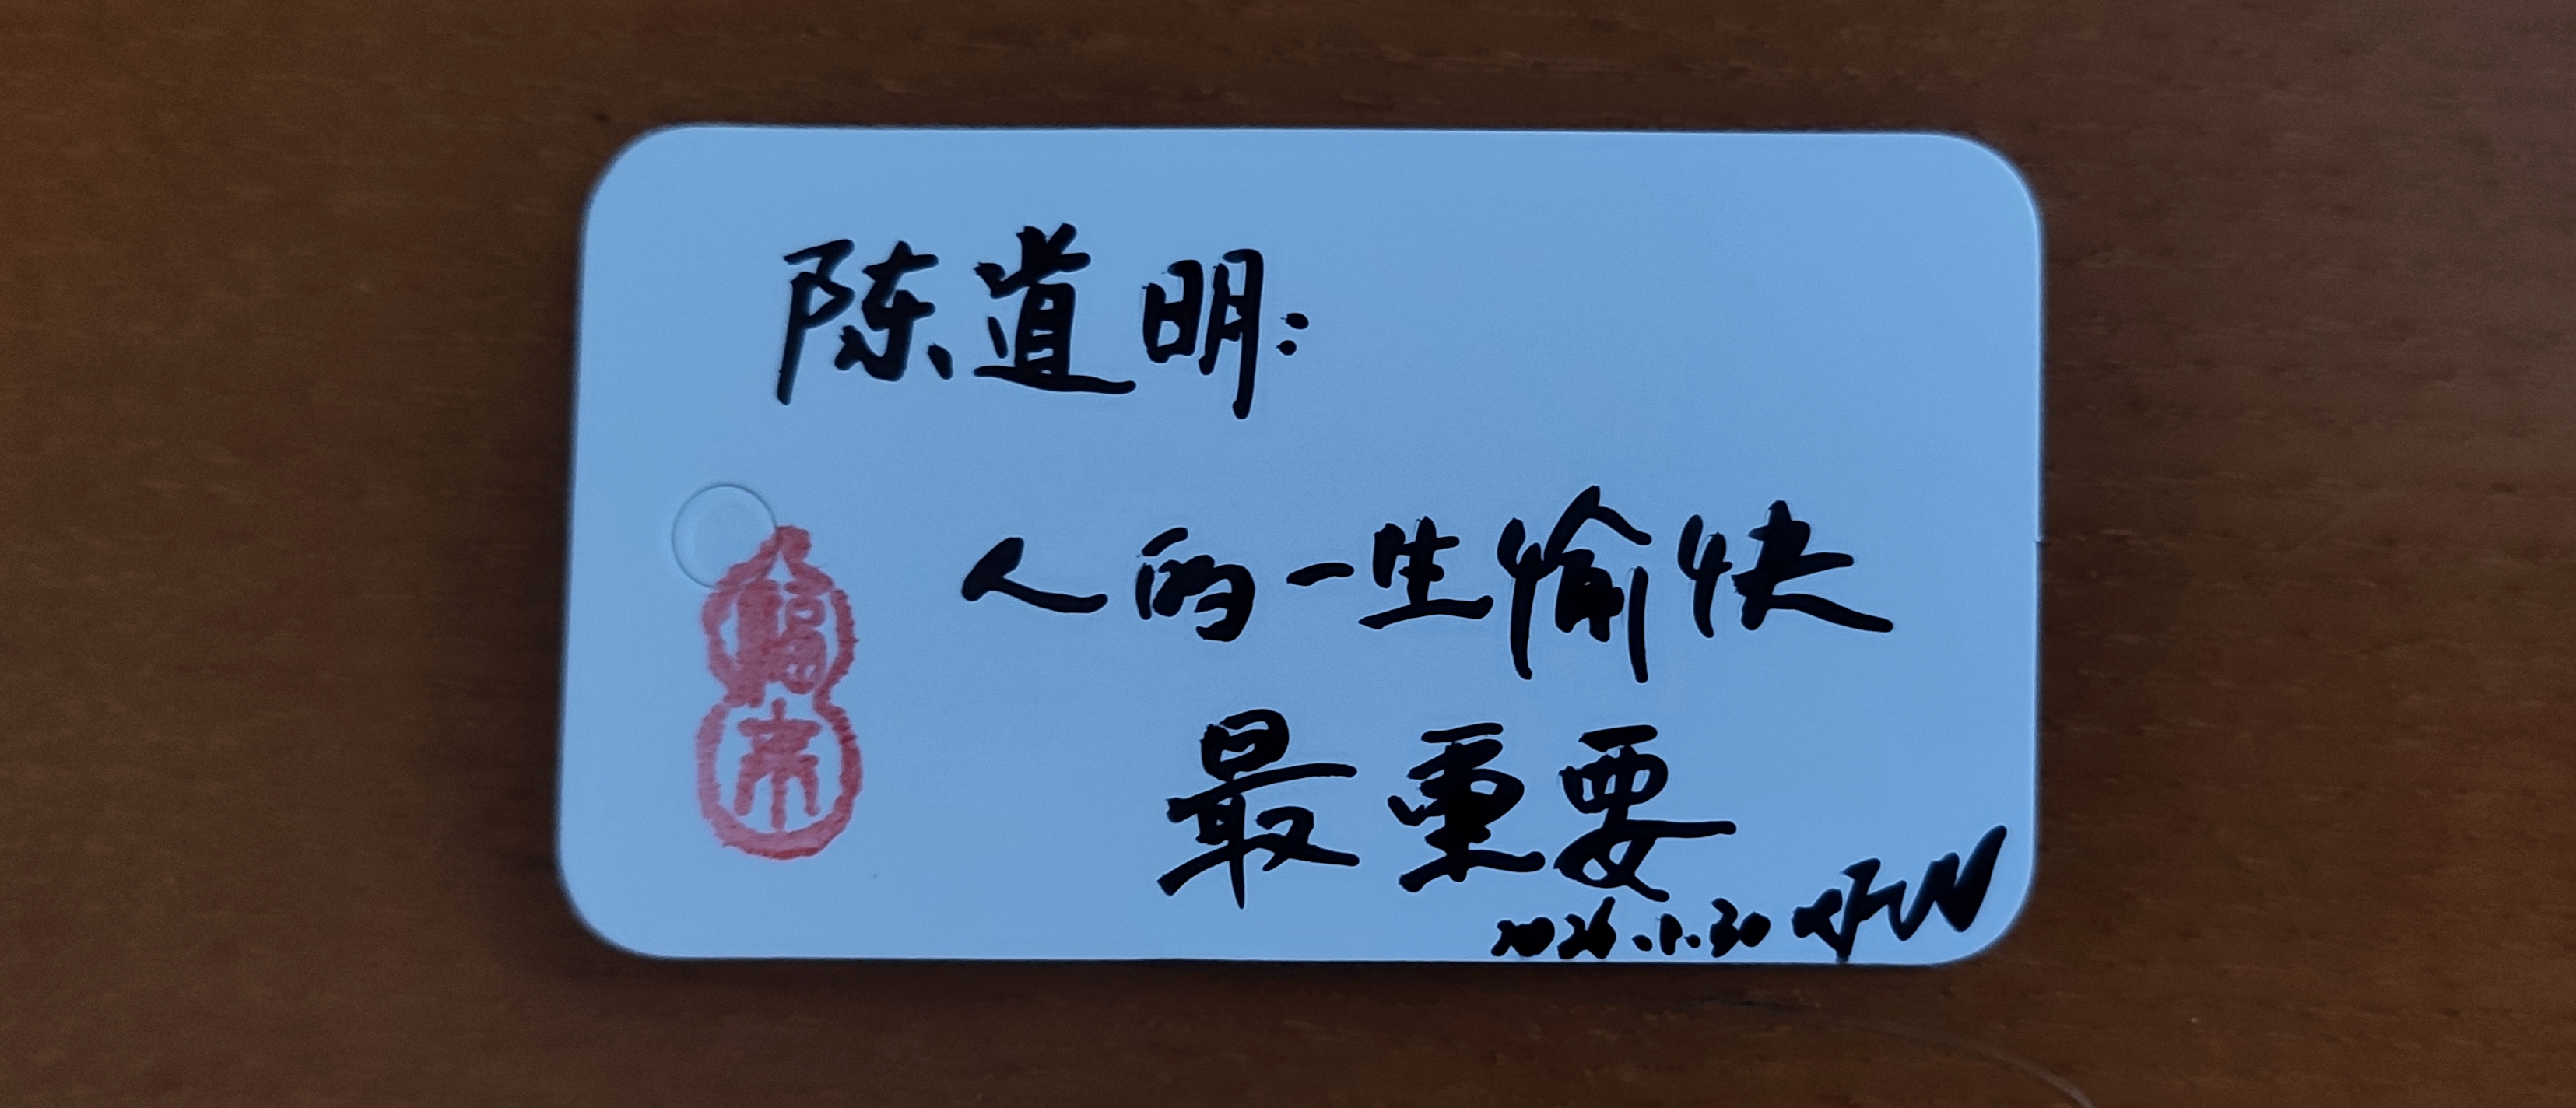 陈道明：
人的一生愉快
最重要
2026.1.30